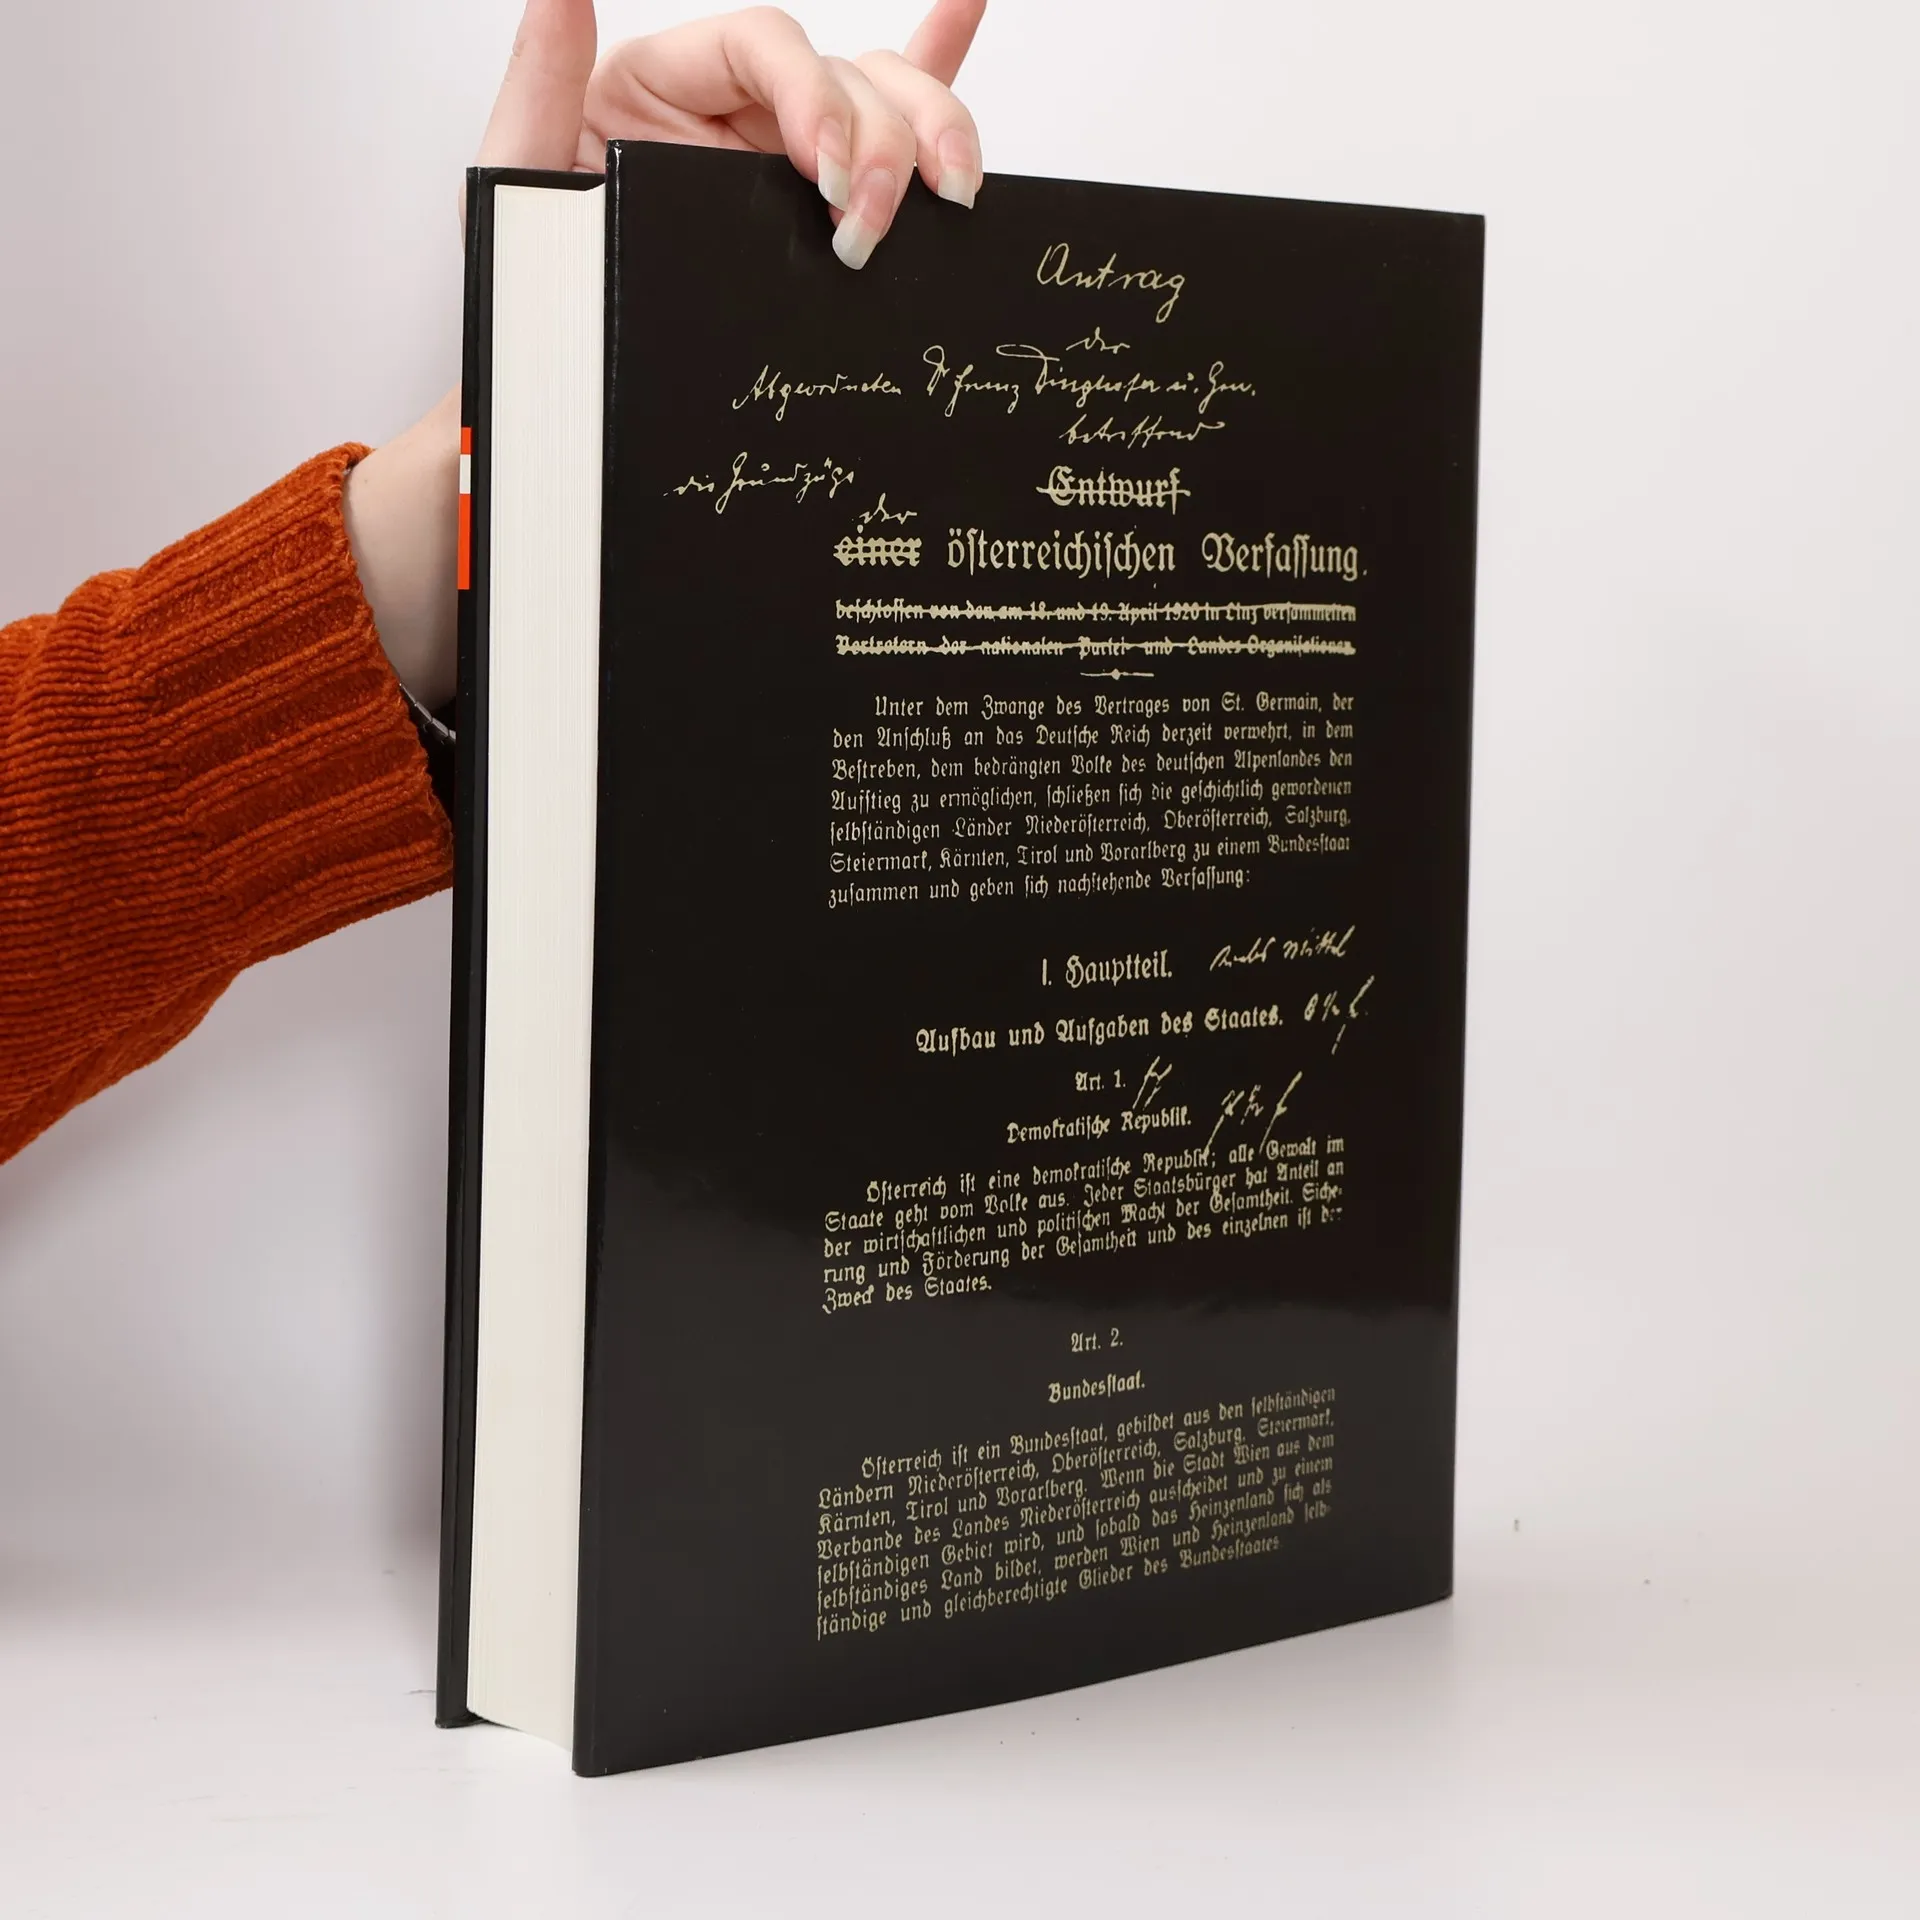 Antrag
der
Abgeordneten Dr Franz Dinghofer u. Gen.
betreffend
die Grundzüge
Entwurf
der
einer öſterreichiſchen Verfaſſung.
beſchloſſen von den am 18. und 19. April 1920 in Linz verſammelten
Vertretern der nationalen Partei- und Landes-Organiſationen.
Unter dem Zwange des Vertrages von St. Germain, der
den Anſchluß an das Deutſche Reich derzeit verwehrt, in dem
Beſtreben, dem bedrängten Volke des deutſchen Alpenlandes den
Aufſtieg zu ermöglichen, ſchließen ſich die geſchichtlich gewordenen
ſelbſtändigen Länder Niederöſterreich, Oberöſterreich, Salzburg,
Steiermark, Kärnten, Tirol und Vorarlberg zu einem Bundesſtaat
zuſammen und geben ſich nachſtehende Verfaſſung:
I. Hauptteil.
Aufbau und Aufgaben des Staates.
Art. 1.
Demokratiſche Republik.
Öſterreich iſt eine demokratiſche Republik; alle Gewalt im
Staate geht vom Volke aus. Jeder Staatsbürger hat Anteil an
der wirtſchaftlichen und politiſchen Macht der Geſamtheit. Siche-
rung und Förderung der Geſamtheit und des einzelnen iſt der
Zweck des Staates.
Art. 2.
Bundesſtaat.
Öſterreich iſt ein Bundesſtaat, gebildet aus den ſelbſtändigen
Ländern Niederöſterreich, Oberöſterreich, Salzburg, Steiermark,
Kärnten, Tirol und Vorarlberg. Wenn die Stadt Wien aus dem
Verbande des Landes Niederöſterreich ausſcheidet und zu einem
ſelbſtändigen Gebiet wird, und ſobald das Heinzenland ſich als
ſelbſtändiges Land bildet, werden Wien und Heinzenland ſelb-
ſtändige und gleichberechtigte Glieder des Bundesſtaates.